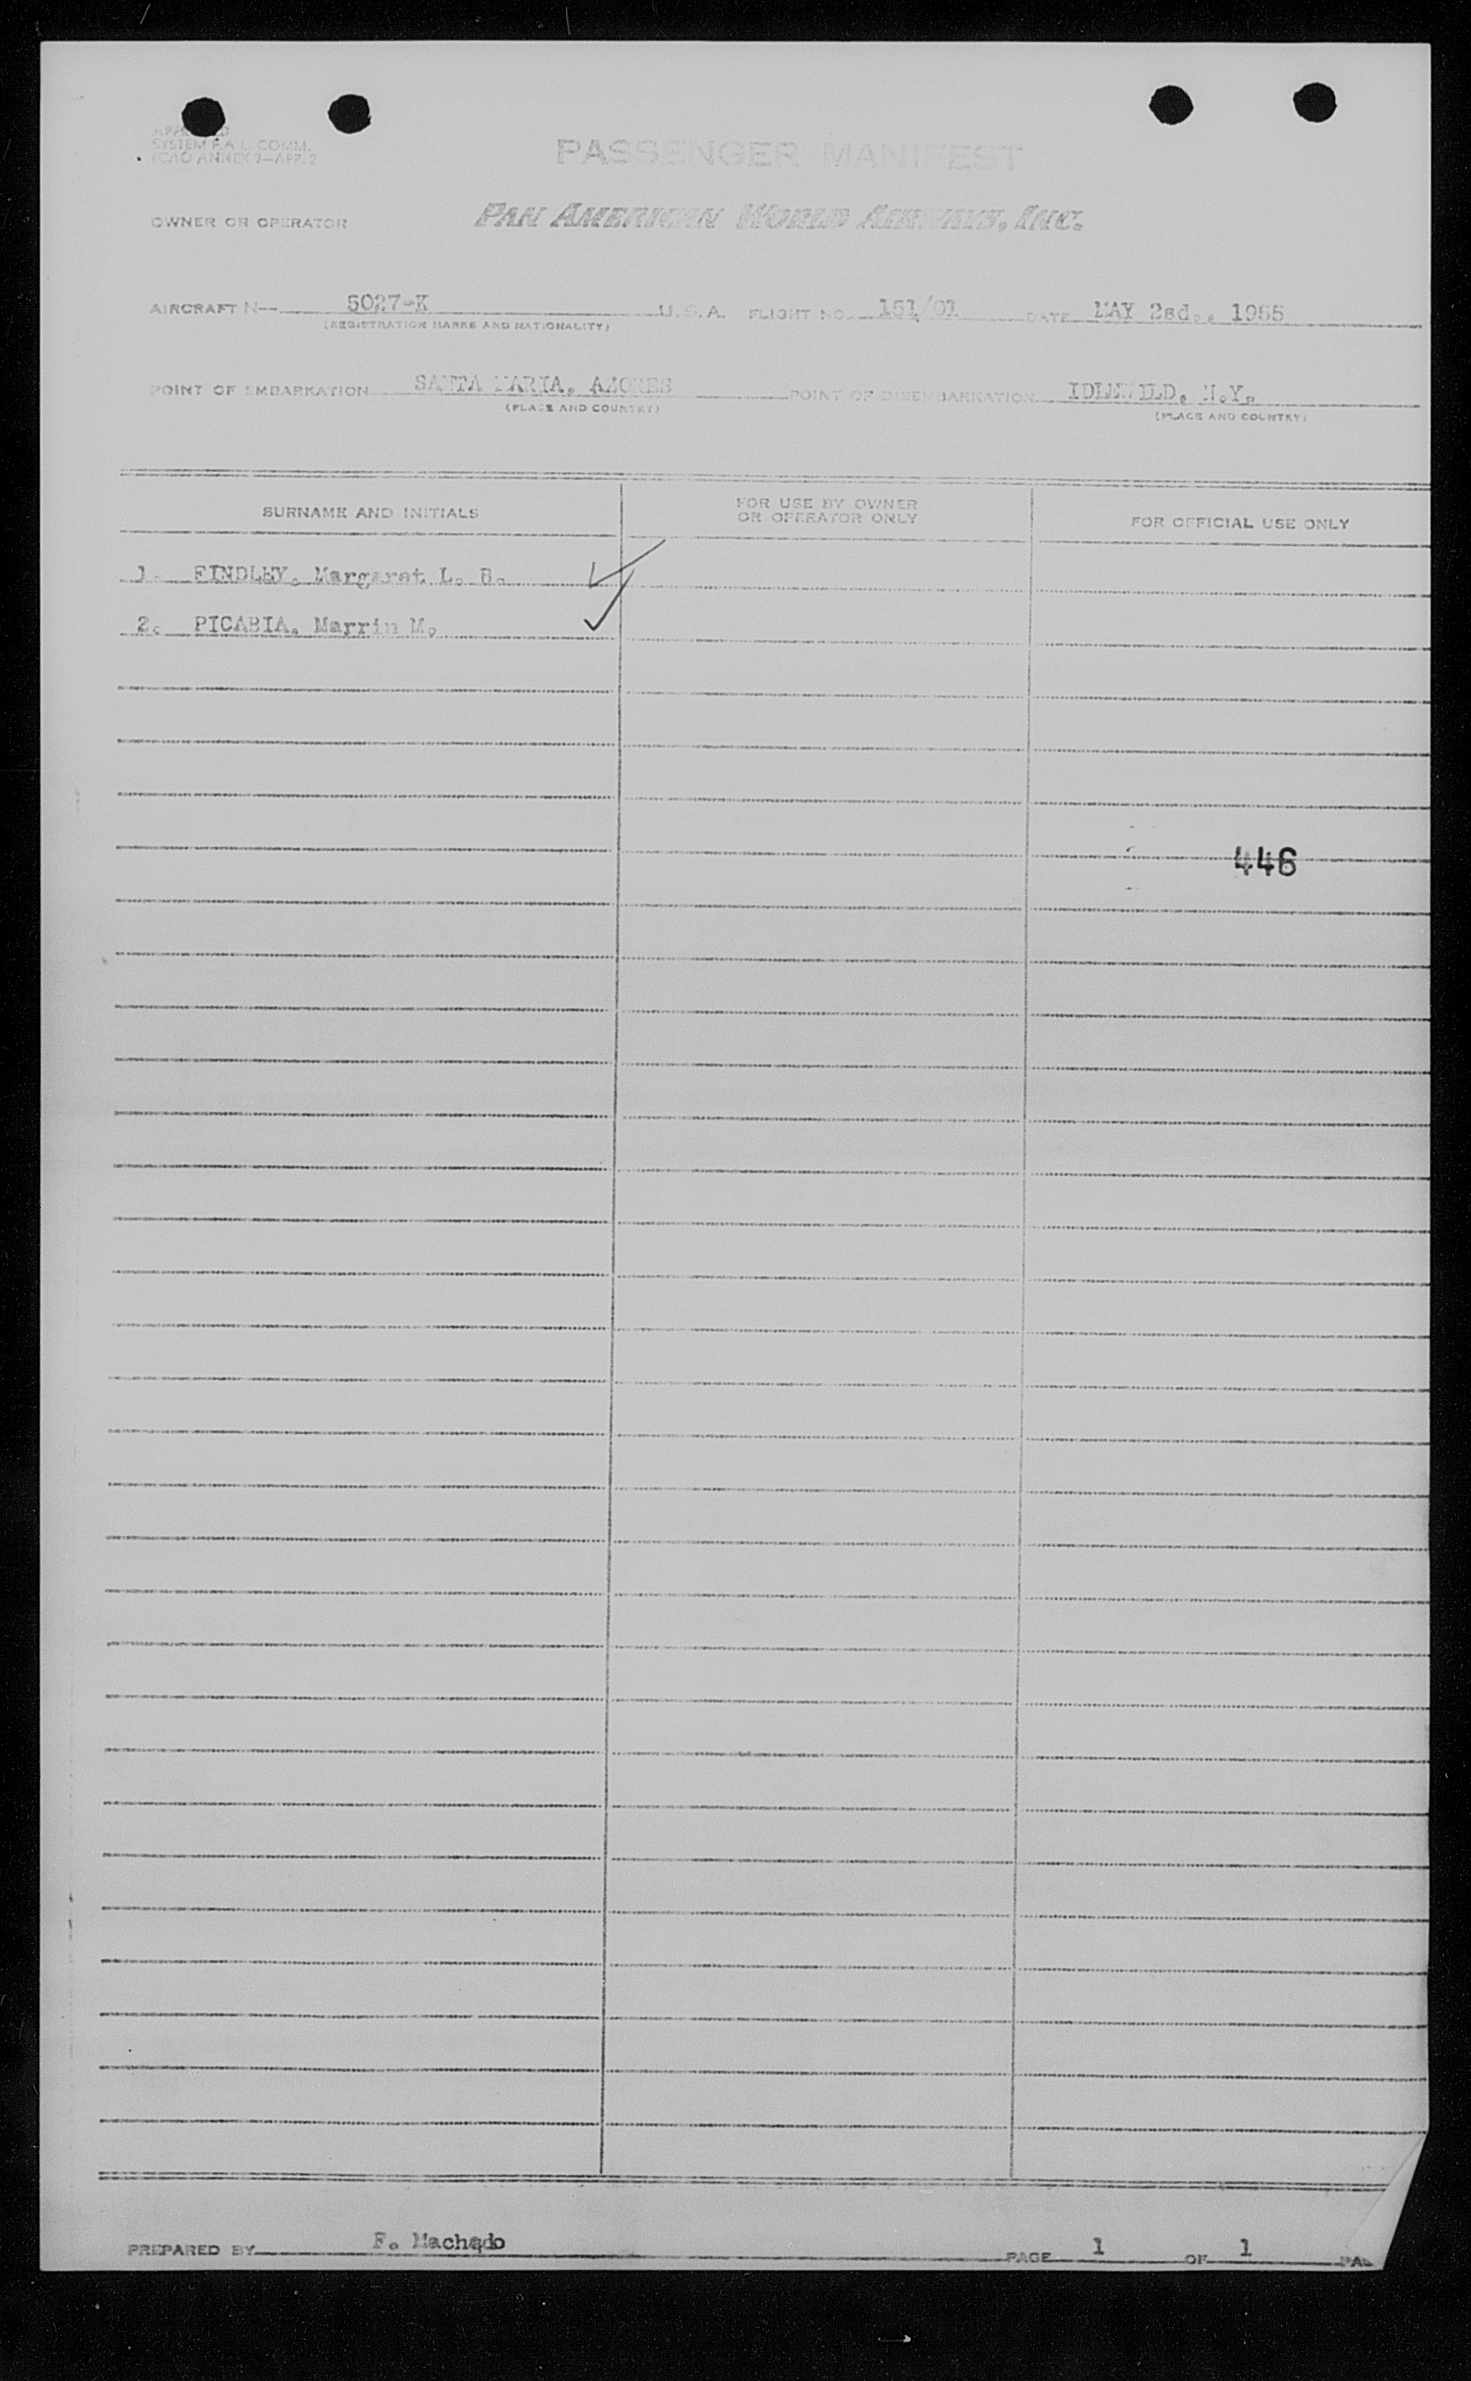 SYSTEM F.A.L. COMM.
ICAO ANNEX 9—APP. 2
PASSENGER MANIFEST
OWNER OR OPERATOR PAN AMERICAN WORLD AIRWAYS, INC.
AIRCRAFT N-- 5027-K U.S.A. FLIGHT NO. 151/01 DATE MAY 2sd., 1955
(REGISTRATION MARKS AND NATIONALITY)
POINT OF EMBARKATION SANTA MARIA, AZORES POINT OF DISEMBARKATION IDLEWILD, N.Y.
(PLACE AND COUNTRY) (PLACE AND COUNTRY)
SURNAME AND INITIALS FOR USE BY OWNER OR OPERATOR ONLY FOR OFFICIAL USE ONLY
1. FINDLEY, Margaret L. B.
2. PICABIA, Marrin M.
446
PREPARED BY F. Machado PAGE 1 OF 1